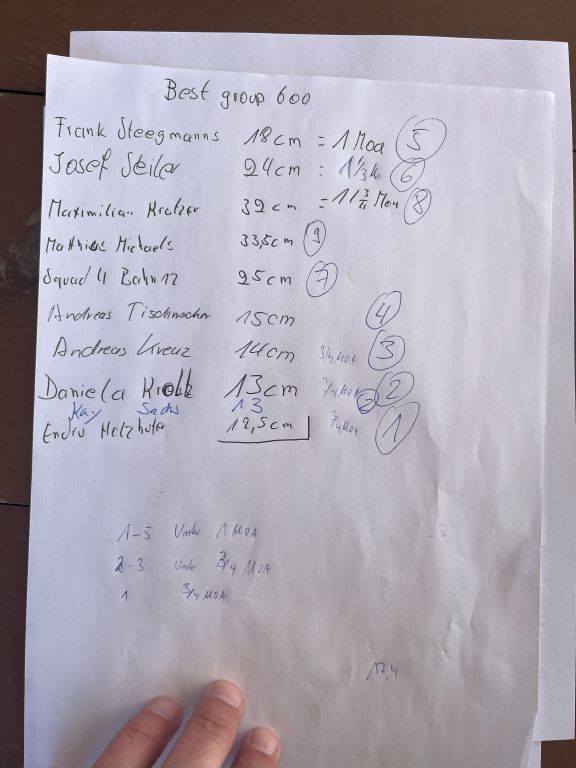 Best group 600
Frank Steegmanns 18cm = 1 Moa 5
Josef Seiler 24cm = 1 1/3 M. 6
Maximilian Kratzer 32cm = 1 3/4 Moa 8
Matthias Michaels 33,5cm 9
Squad 4 Bahn 12 25cm 7
Andreas Tischmacher 15cm 4
Andreas Kreuz 14cm 3/4 MOA 3
Daniela Krollz 13cm 3/4 MOA 2
Kay Sachs 13 2
12,5cm 3/4 MOA 1
1-5 Unter 1 MOA
2-3 Unter 3/4 MOA
1 3/4 MOA
17.4